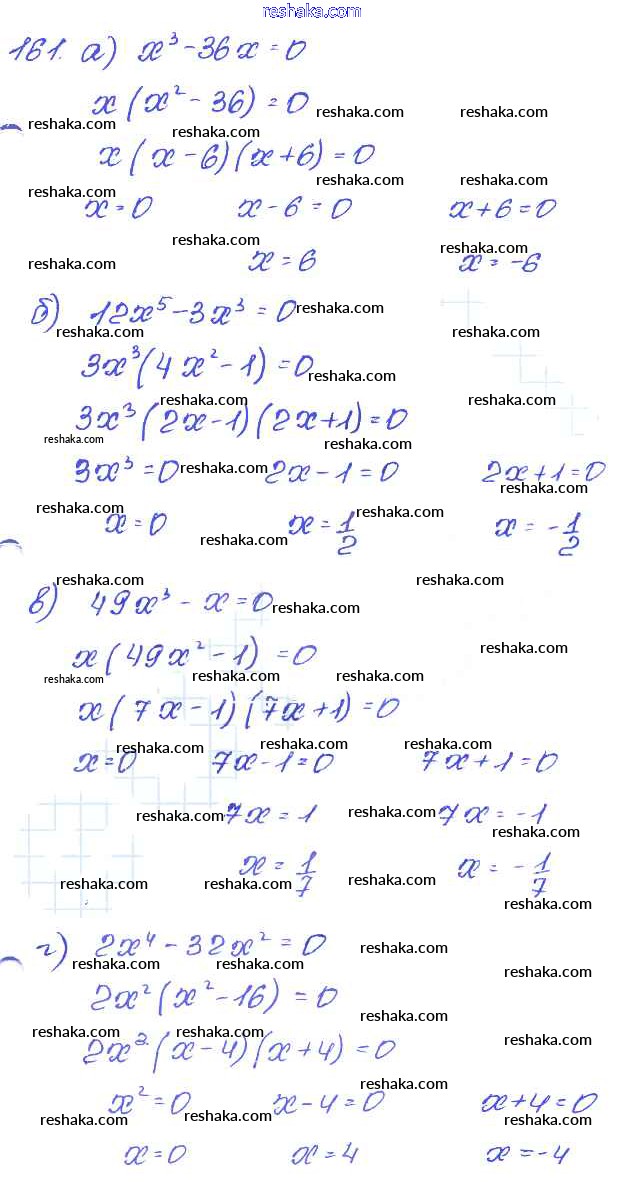 reshaka.com
161. а) x³ - 36x = 0
x (x² - 36) = 0
reshaka.com reshaka.com reshaka.com reshaka.com
x (x - 6) (x + 6) = 0
reshaka.com reshaka.com reshaka.com
x = 0 x - 6 = 0 x + 6 = 0
reshaka.com reshaka.com reshaka.com
x = 6 x = -6
б) 12x⁵ - 3x³ = 0 reshaka.com
reshaka.com reshaka.com
3x³ (4x² - 1) = 0 reshaka.com
reshaka.com reshaka.com
3x³ (2x - 1) (2x + 1) = 0
reshaka.com reshaka.com
3x³ = 0 reshaka.com 2x - 1 = 0 2x + 1 = 0
reshaka.com reshaka.com reshaka.com
x = 0 x = 1/2 x = -1/2
reshaka.com
reshaka.com reshaka.com
в) 49x³ - x = 0 reshaka.com
x (49x² - 1) = 0 reshaka.com
reshaka.com reshaka.com reshaka.com
x (7x - 1) (7x + 1) = 0
reshaka.com reshaka.com reshaka.com
x = 0 7x - 1 = 0 7x + 1 = 0
reshaka.com 7x = 1 reshaka.com 7x = -1
reshaka.com
x = 1/7 x = -1/7
reshaka.com reshaka.com reshaka.com
reshaka.com
г) 2x⁴ - 32x² = 0 reshaka.com
reshaka.com reshaka.com reshaka.com
2x² (x² - 16) = 0
reshaka.com
reshaka.com reshaka.com reshaka.com
2x² (x - 4) (x + 4) = 0
reshaka.com
x² = 0 x - 4 = 0 x + 4 = 0
reshaka.com reshaka.com reshaka.com
x = 0 x = 4 x = -4